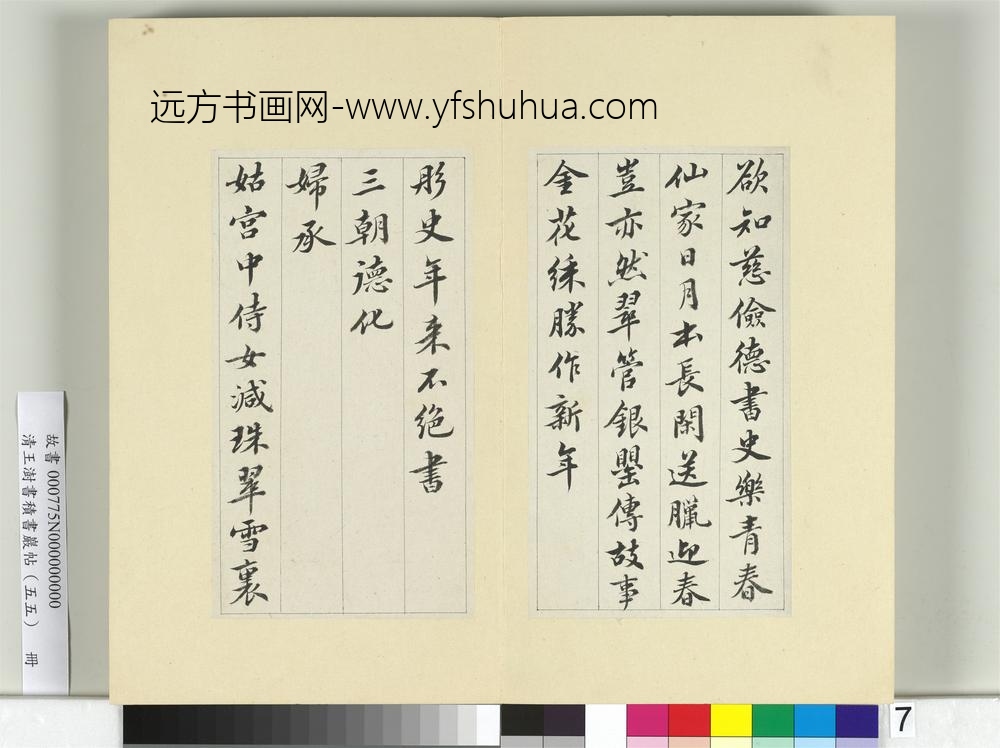 远方书画网-www.yfshuhua.com
欲知慈儉德書史樂青春
仙家日月本長閑送臘迎春
豈亦然翠管銀罌傳故事
金花綵勝作新年
彤史年來不絕書
三朝德化
婦承
姑宮中侍女減珠翠雪裏
故書 000775N000000000
清王澍書積書巖帖（五五） 冊
7